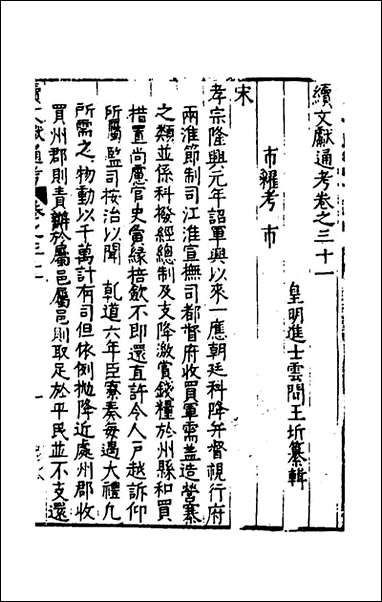 續文獻通考卷之三十一
皇明進士雲間王圻纂輯
市糴考 市
宋
孝宗隆興元年詔軍興以來一應朝廷科降并督視行府
兩淮節制司江淮宣撫司都督府收買軍需盖造營寨
之類並係科撥經總制及支降激賞錢糧於州縣和買
措置尚慮官吏夤緣掊斂不即還直許令人戶越訴仰
所屬監司按治以聞 乹道六年臣寮奏每遇大禮凢
所需之物動以千萬計有司但依例拋降近處州郡收
買州郡則責辦於屬邑屬邑則取足於平民並不支還